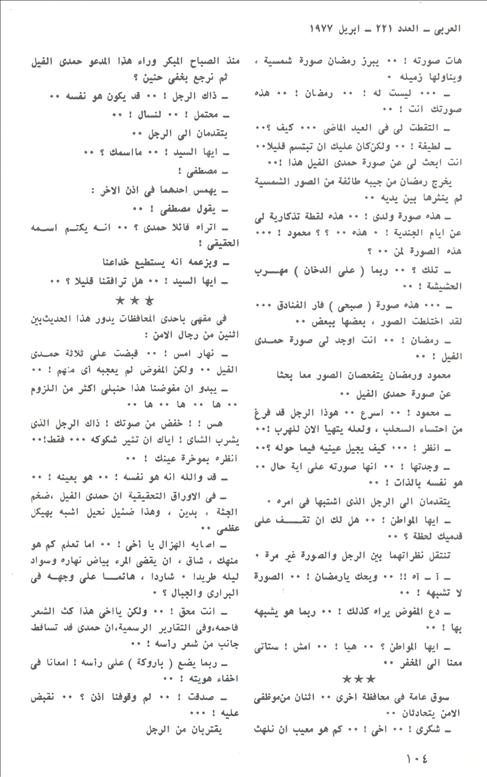 العربي ــ العدد ٢٢١ ــ ابريل ١٩٧٧
هات صورته ! ٠٠ يبرز رمضان صورة شمسية ،
ويناولها زميله ٠
ــ ٠٠٠ ليست له ! ٠٠ رمضان ! ٠٠ هذه
صورتك انت ! ٠٠
ــ التقطت لى فى العيد الماضى ٠٠٠ كيف ؟٠٠
ــ لطيفة ! ٠٠ ولكن كان عليك ان تبتسم قليلا٠٠
انت ابحث لى عن صورة حمدى الفيل هذا !٠٠
يخرج رمضان من جيبه طائفة من الصور الشمسية
ثم ينثرها بين يديه ٠٠
ــ هذه صورة ولدى ! ٠٠ هذه لقطة تذكارية لى
عن ايام الجندية ! ٠ هذه ٠٠ ؟ ؟ محمود ! ٠٠٠
هذه الصورة لمن ٠٠ ؟
ــ تلك ؟ ٠٠ ربما ( على الدخان ) مهــرب
الحشيشة ! ٠٠
ــ ٠٠٠ هذه صورة ( صبحى ) فار الفنادق ٠٠٠
لقد اختلطت الصور ، بعضها ببعض ٠٠
ــ رمضان ! ٠٠ انت اوجد لى صورة حمــدى
الفيل ! ٠٠
محمود ورمضان يتفحصان الصور معا بحثا
عن صورة حمدى الفيل ٠٠
ــ محمود ! ٠٠ اسرع ٠٠ هوذا الرجل قد فرغ
من احتساء السحلب ، ولعله يتهيا الان للهرب !٠٠
ــ انظر ! ٠٠٠ كيف يجيل عينيه فيما حوله ؟٠٠
ــ وجدتها ! ٠٠ انها صورته على اية حال ٠٠
هو نفسه بالذات ! ٠٠
يتقدمان الى الرجل الذى اشتبها فى امره ٠
ــ ايها المواطن ! ٠٠ هل لك ان تقــف على
قدميك لحظة ؟ ٠٠
تنتقل نظراتهما بين الرجل والصورة غير مرة ٠
ــ آ ــ آه !! ٠٠ ويحك يارمضان ! ٠٠ الصورة
لا تشبهه ! ٠٠
ــ دع المفوض يراه كذلك ! ٠٠ ربما هو يشبهه
بها ! ٠٠
ــ ايها المواطن ؟ ٠٠ هيا ! ٠٠ امش ! ستأتى
معنا الى المخفر ٠٠
★★★
سوق عامة فى محافظة اخرى ٠٠ اثنان من موظفى
الامن يتحادثان ٠٠
ــ شكرى ! ٠٠ اخى ! ٠٠ كم هو معيب ان نلهث
منذ الصباح المبكر وراء هذا المدعو حمدى الفيل
ثم نرجع بخفى حنين ؟ ٠٠
ــ ذاك الرجل ! ٠٠ قد يكون هو نفسه ٠٠
ــ محتمل ! ٠٠ لنسال ! ٠٠
يتقدمان الى الرجل ٠٠
ــ ايها السيد ! ٠٠ مااسمك ؟ ٠٠
ــ مصطفى !
ــ يهمس احدهما فى اذن الاخر :
ــ يقول مصطفى ! ٠٠
ــ اتراه قائلا حمدى ؟ ٠٠ انــه يكتــم اسمـه
الحقيقى !
ــ وبزعمه انه يستطيع خداعنا
ــ ايها السيد ! ٠٠ هل ترافقنا قليلا ؟ ٠٠
★★★
فى مقهى باحدى المحافظات يدور هذا الحديث بين
اثنين من رجال الامن :
ــ نهار امس ! ٠٠ قبضت على ثلاثة حمـدى
الفيل ٠٠ ولكن المفوض لم يعجبه أى منهم ! ٠٠
ــ يبدو ان مفوضنا هذا حنبلى اكثر من اللزوم
٠٠ ها ٠٠ ها ٠٠ ها ٠٠
هس !! ! خفض من صوتك ! ذاك الرجل الذى
يشرب الشاى ! اياك ان تثير شكوكه ٠٠٠ فقط!٠٠
انظره بموخرة عينك ! ٠٠
ــ قد والله انه هو نفسه ! ٠٠ هو بعينه ! ٠٠
ــ فى الاوراق التحقيقية ان حمدى الفيل ،ضخم
الجثة ، بدين ، وهذا ضئيل نحيل اشبه بهيكل
عظمى ٠٠
ــ اصابه الهزال يا أخى ! ٠٠ اما تعلم كم هو
منهك ، شاق ، ان يقضى المرء بياض نهاره وسواد
ليله طريدا ٠ شاردا ، هائمـا على وجهـه فى
البرارى والجبال ؟ ٠
ــ انت محق ! ٠٠ ولكن يااخى هذا كث الشعر
فاحمه،وفى التقارير الرسمية،ان حمدى قد تساقط
جانب من شعر رأسه ! ٠٠
ــ ربما يضع ( باروكة ) على رأسه ! امعانا فى
اخفاء هويته ! ٠٠
ــ صدقت ! ٠٠ لم وقوفنا اذن ؟ ٠٠ نقبض
عليه ! ٠٠٠
يقتربان من الرجل
١٠٤